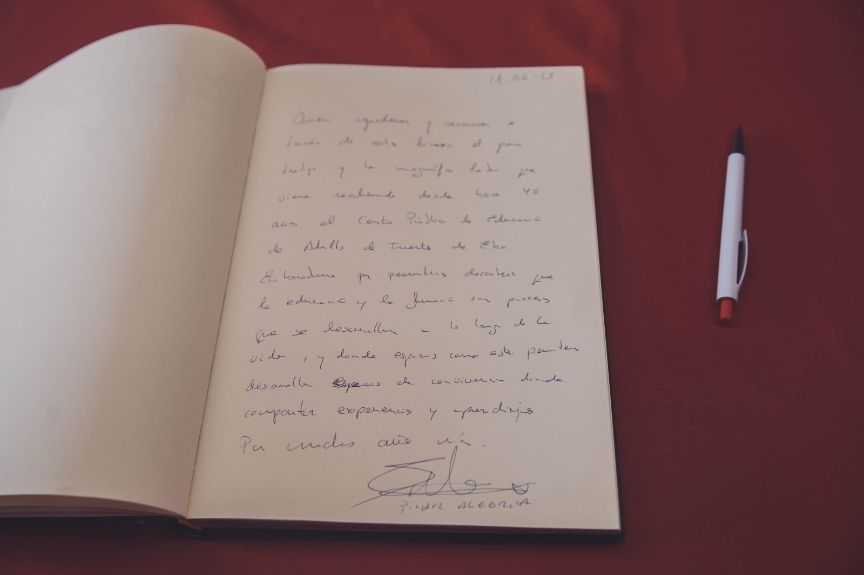 18-06-25
Quiero agradecer y reconocer a
través de estas líneas el gran
trabajo y la magnífica labor que
viene realizando desde hace 40
años el Centro Público de Educación
de Adultos de Fuentes de Ebro
Enhorabuena por permitirnos descubrir que
la educación y la formación son procesos
que se desarrollan a lo largo de la
vida, y donde espacios como este permiten
desarrollar espacios de convivencia donde
compartir experiencias y aprendizajes
Por muchos años más.
PILAR ALEGRÍA